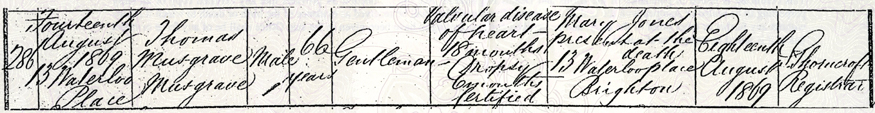 286
Fourteenth
August
1869
13 Waterloo
Place
Thomas
Musgrave
Musgrave
Male
66
years
Gentleman
Valvular disease
of heart
18 months
Dropsy
6 months
Certified
Mary Jones
present at the
death
13 Waterloo Place
Brighton
Eighteenth
August
1869
Registrar